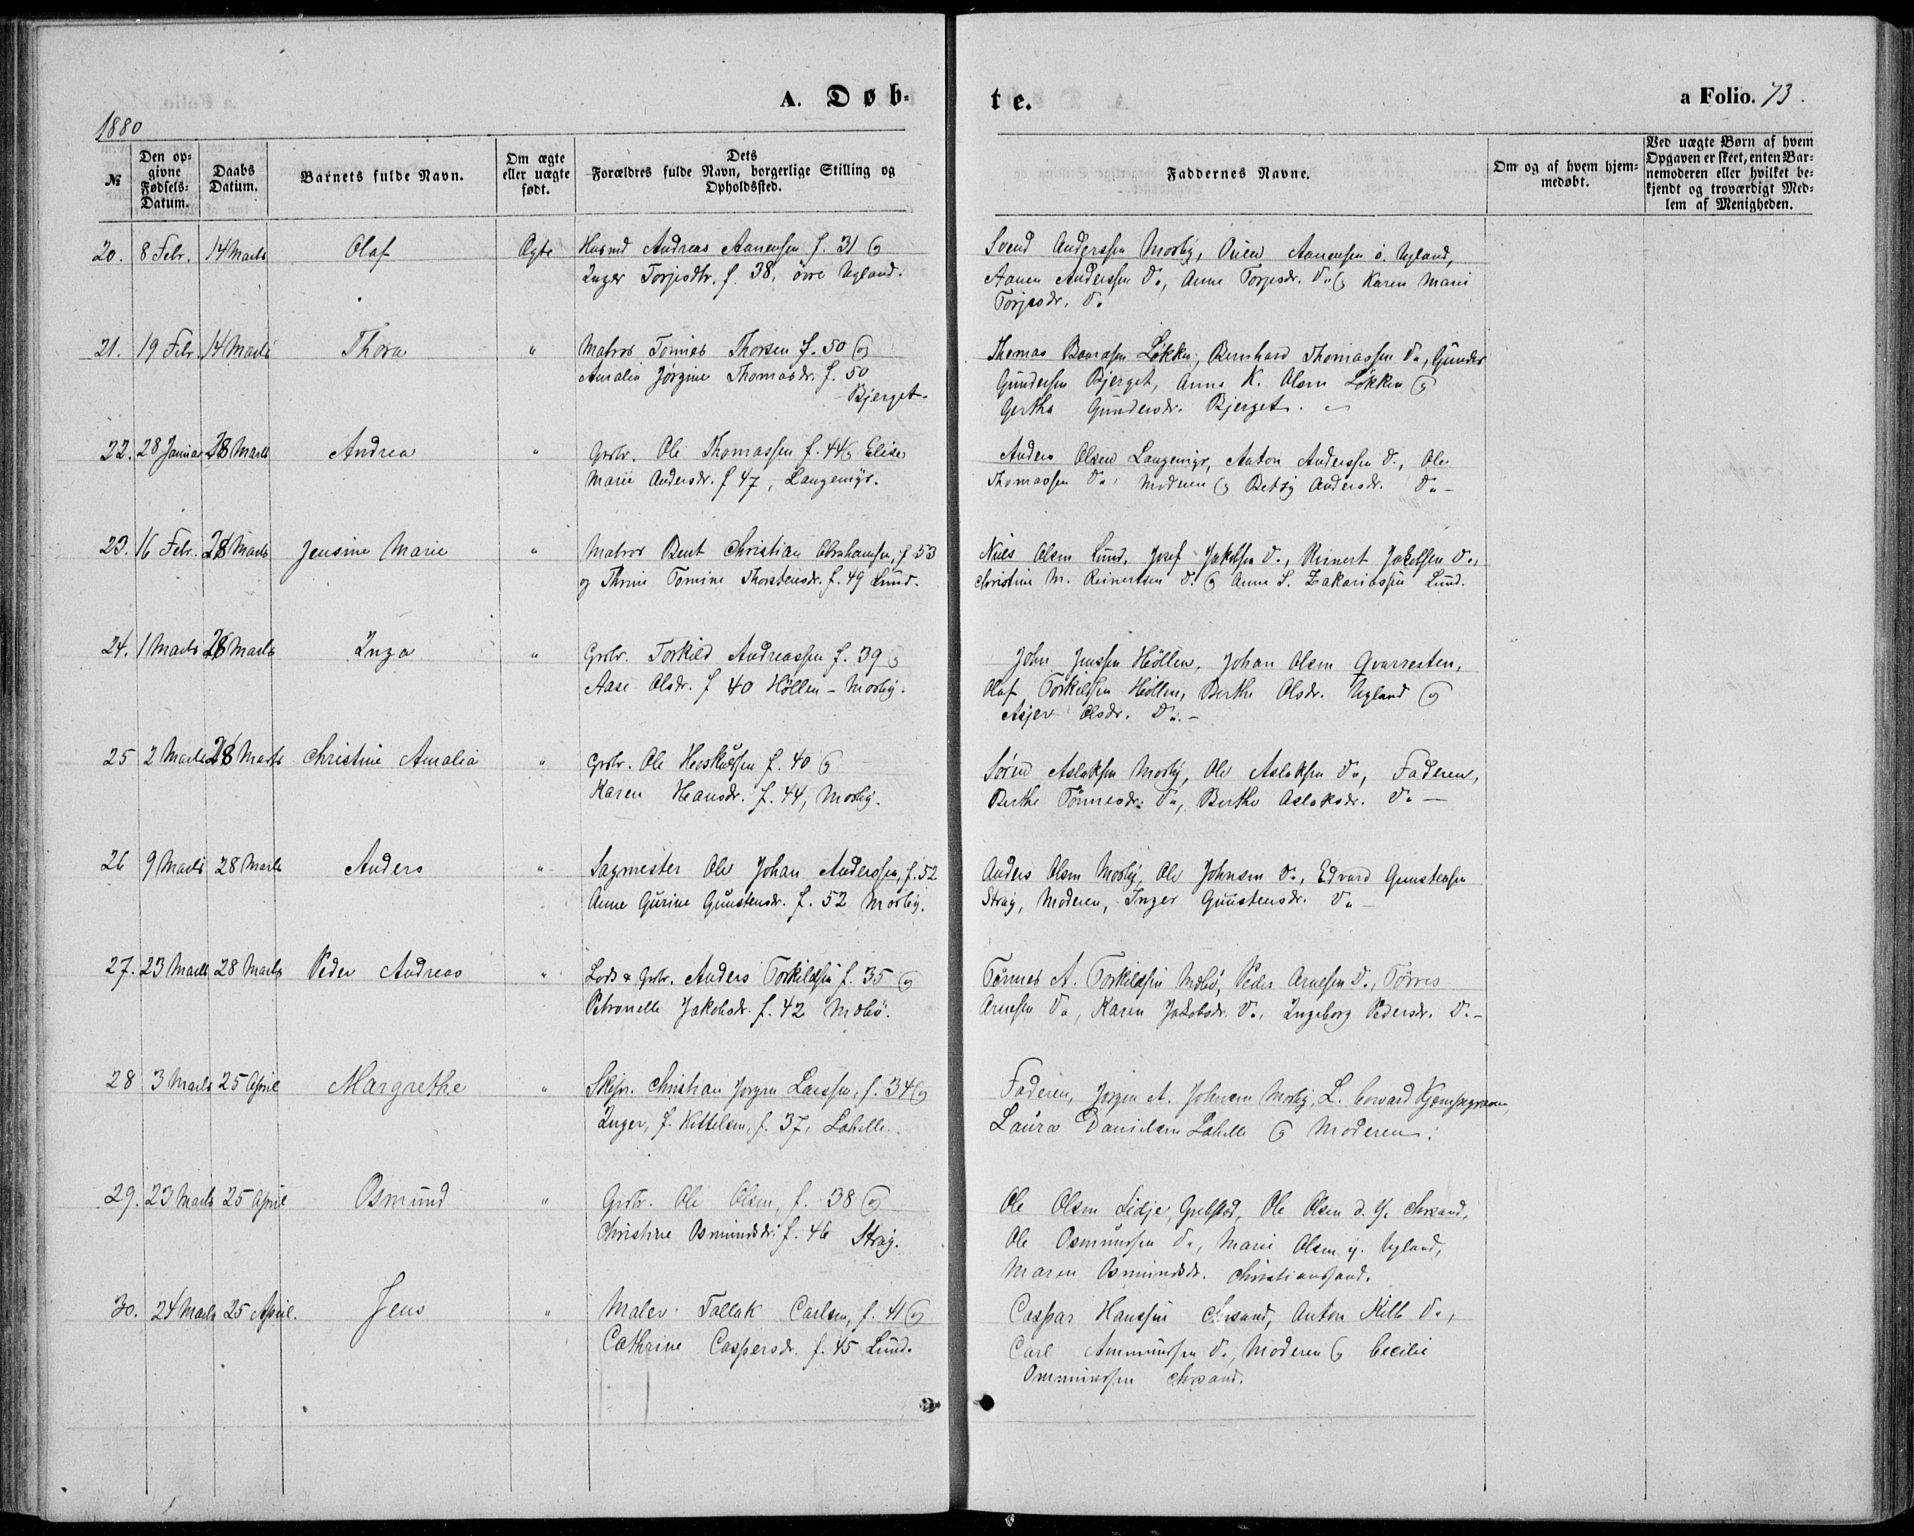 A. Døb-
te.
a Folio. 73.
1880
№
Den op-
givne
Fødsels-
Datum.
Daabs
Datum.
Barnets fulde Navn.
Om ægte
eller uægte
født.
Dets
Forældres fulde Navn, borgerlige Stilling og
Opholdssted.
Faddernes Navne.
Om og af hvem hjem-
medøbt.
Ved uægte Børn af hvem
Opgaven er skeet, enten Bar-
nemoderen eller hvilket be-
kjendt og troværdigt Med-
lem af Menigheden.
20. 8 Febr. 14 Marts Olaf Ægte Husmd Andreas Aanensen f. 31 og
Inger Torjesdtr. f. 38, øvre Ugland.
Svend Anderssen Mosby, Ouen Aanensen ö. Ugland,
Aanen Anderssen Do, Anne Torjesdr. Do og Karen Marie
Torjesdr. Do
21. 19 Febr. 14 Marts Thora " Matros Tönnes Thorsen f. 50 og
Amalia Jørgine Thomasdr. f. 50
Bjerget.
Thomas Løkken, Bernhard Thomassen Do, Gunder
Gundersen Bjerget, Anne K. Olsen Løkken og
Gertha Gundersdr. Bjerget.
22. 28 Januar 28 Marts Andrea " Grbr. Ole Thomassen f. 44 og Elise
Marie Andersdr. f 47, Langemyr.
Anders Olsen Langemyr, Anton Anderssen Do, Ole
Thomassen Do, Moderen og Betsy Andersdr. Do -
23. 16 Febr. 28 Marts Jensine Marie " Matros Bent Christian Abrahamsen, f 53
og Thrine Tomine Thorstensdr. f. 49 Lund.
Niels Olsen Lund, Josef Jakobsen Do, Reinert Jakobsen Do,
Christine M. Reinertsen Do og Anne S. Zakariassen Lund.
24. 1 Marts 28 Marts Inga " Grbr. Torkild Andreassen f. 39 og
Aase Olsdr. f 40 Høllen - Mosby.
John Jenssen Høllen, Johan Olsen Qvarresten,
Olaf Torkildsen Høllen, Berthe Olsdr. Ugland og
Asjer Olsdr. Do -
25 2 Marts 28 Marts Christine Amalia " Grbr. Ole Herskildsen f. 40 og
Karen Hansdr. f. 44, Mosby.
Søren Aslaksen Mosby, Ole Aslaksen Do, Faderen,
Berthe Tönnesdr. Do, Berthe Aslaksdr. Do -
26 9 Marts 28 Marts Anders " Sagmester Ole Johan Anderssen, f. 52
Anne Gurine Gunstensdr. f. 52 Mosby.
Anders Olsen Mosby, Ole Johnsen Do, Edvard Gunstensen
Stray, Moderen, Inger Gunstensdr. Do -
27. 23 Marts 28 Marts Peder Andreas " Lods & Grbr. Anders Torkildsen f. 35 og
Petronelle Jakobsdr. f. 42 Mæbö.
Tönnes A. Torkildsen Mæbö, Peder Arnesen Do, Torres
Arnesen Do, Karen Jakobsdr. Do, Ingeborg Pedersdr. Do -
28 3 Marts 25 April Margrethe " Skipr. Christian Jørgen Larssen, f. 34 og
Inger, f. Kittelsen, f. 37, Lahelle.
Faderen, Jørgen A. Johnsen Mosby, L.
Laura Danielsen Lahelle og Moderen.
29. 23 Marts 25 April Osmund " Grbr. Ole Olsen, f. 38 og
Christine Osmundsdr. f. 46 Stray.
Ole Olsen Lidje, Grebstad, Ole Olsen d. y. Chrsand,
Ole Osmundsen Do, Marie Olsen y. Ugland,
Maren Osmundsdr. Christianssand.
30. 24 Marts 25 April. Jens " Maler Tallak Carlsen, f. 41 og
Cathrine Caspersdr. f. 45 Lund.
Caspar Hanssen Chrsand, Anton Kelb Do,
Carl Ammundsen Do, Moderen og Cecilie
Ommundsen Chrsand.